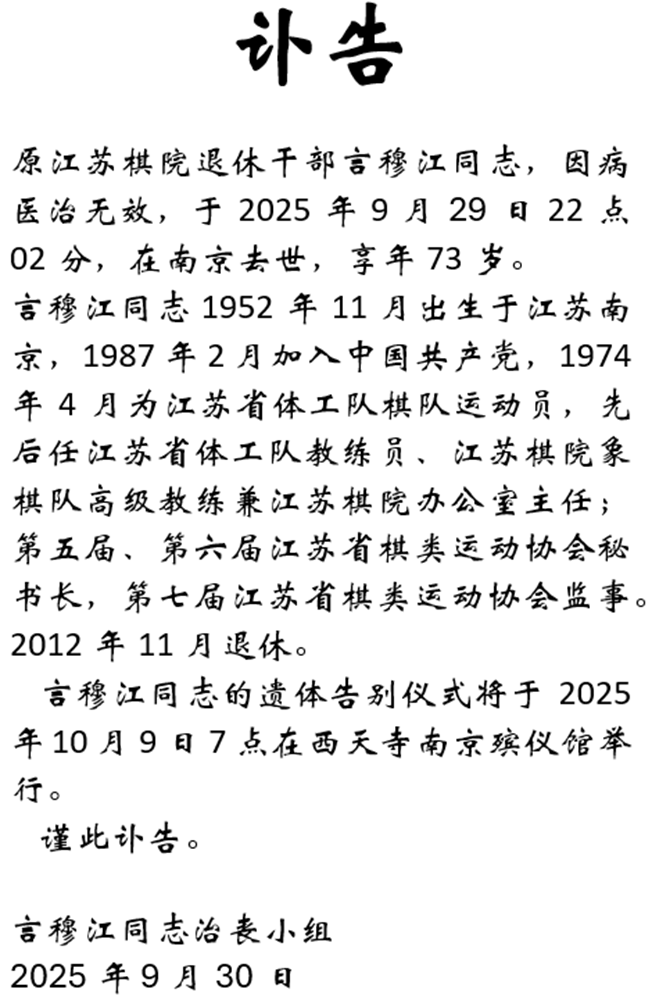 讣告
原江苏棋院退休干部言穆江同志，因病
医治无效，于 2025 年 9 月 29 日 22 点
02 分，在南京去世，享年 73 岁。
言穆江同志 1952 年 11 月出生于江苏南
京，1987 年 2 月加入中国共产党，1974
年 4 月为江苏省体工队棋队运动员，先
后任江苏省体工队教练员、江苏棋院象
棋队高级教练兼江苏棋院办公室主任；
第五届、第六届江苏省棋类运动协会秘
书长，第七届江苏省棋类运动协会监事。
2012 年 11 月退休。
言穆江同志的遗体告别仪式将于 2025
年 10 月 9 日 7 点在西天寺南京殡仪馆举
行。
谨此讣告。
言穆江同志治丧小组
2025 年 9 月 30 日